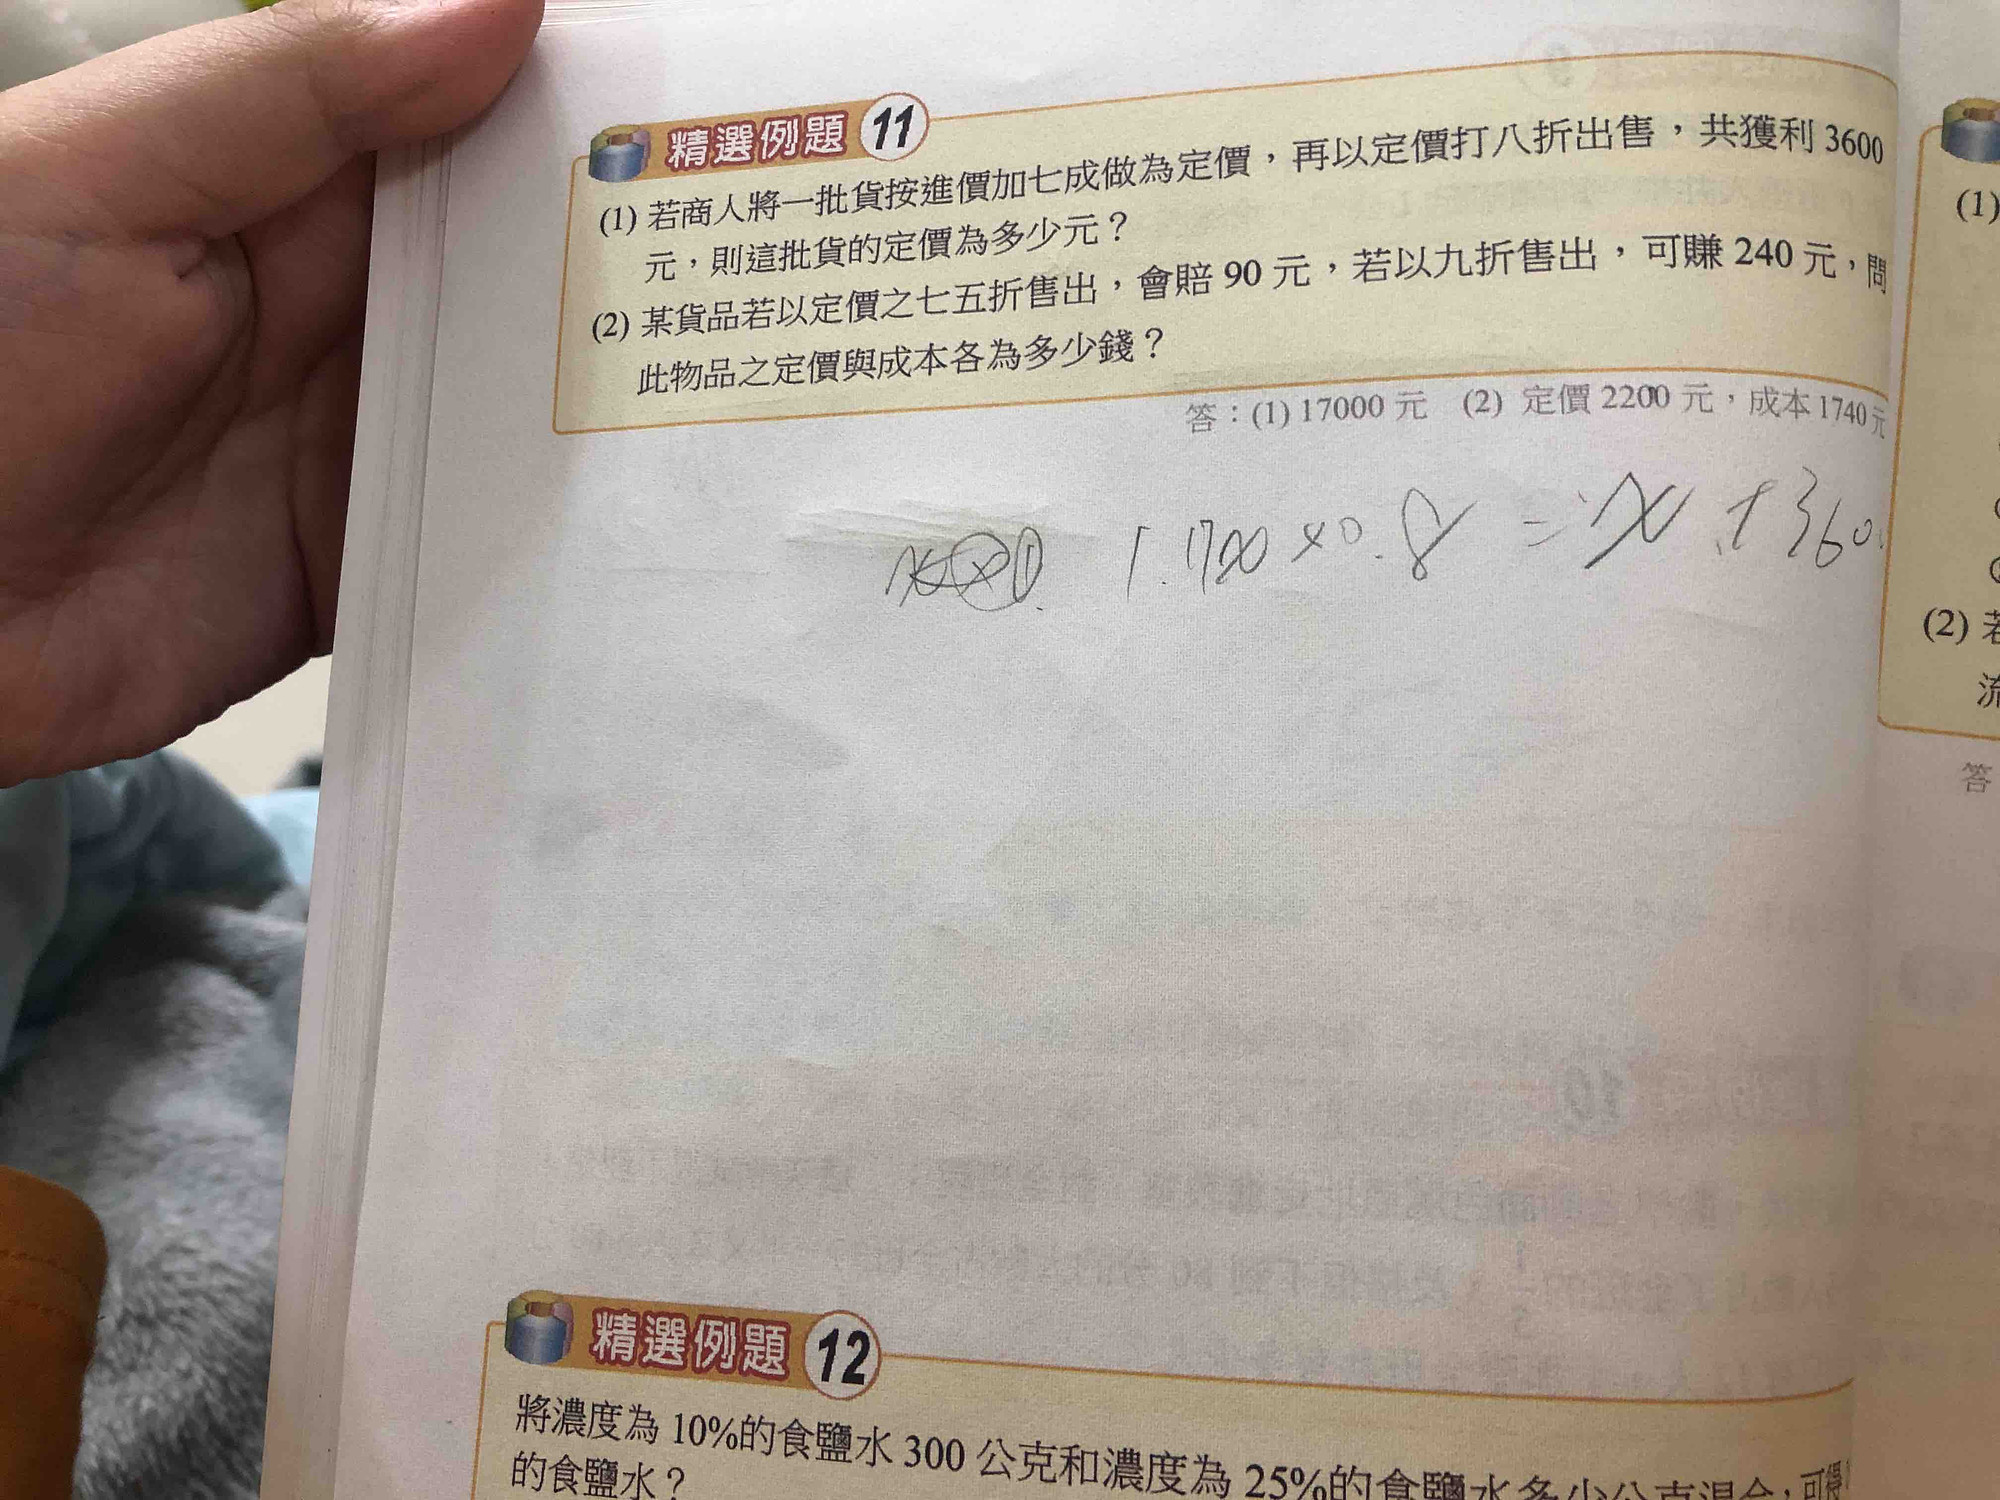 精選例題 11
(1) 若商人將一批貨按進價加七成做為定價，再以定價打八折出售，共獲利 3600
元，則這批貨的定價為多少元？
(2) 某貨品若以定價之七五折售出，會賠 90 元，若以九折售出，可賺 240 元，問
此物品之定價與成本各為多少錢？
答：(1) 17000 元 (2) 定價 2200 元，成本 1740 元
×0.8 = x + 3600
精選例題 12
將濃度為 10%的食鹽水 300 公克和濃度為 25%的食鹽水多少公克混合，可得
的食鹽水？
(1)
(2) 若
流
答